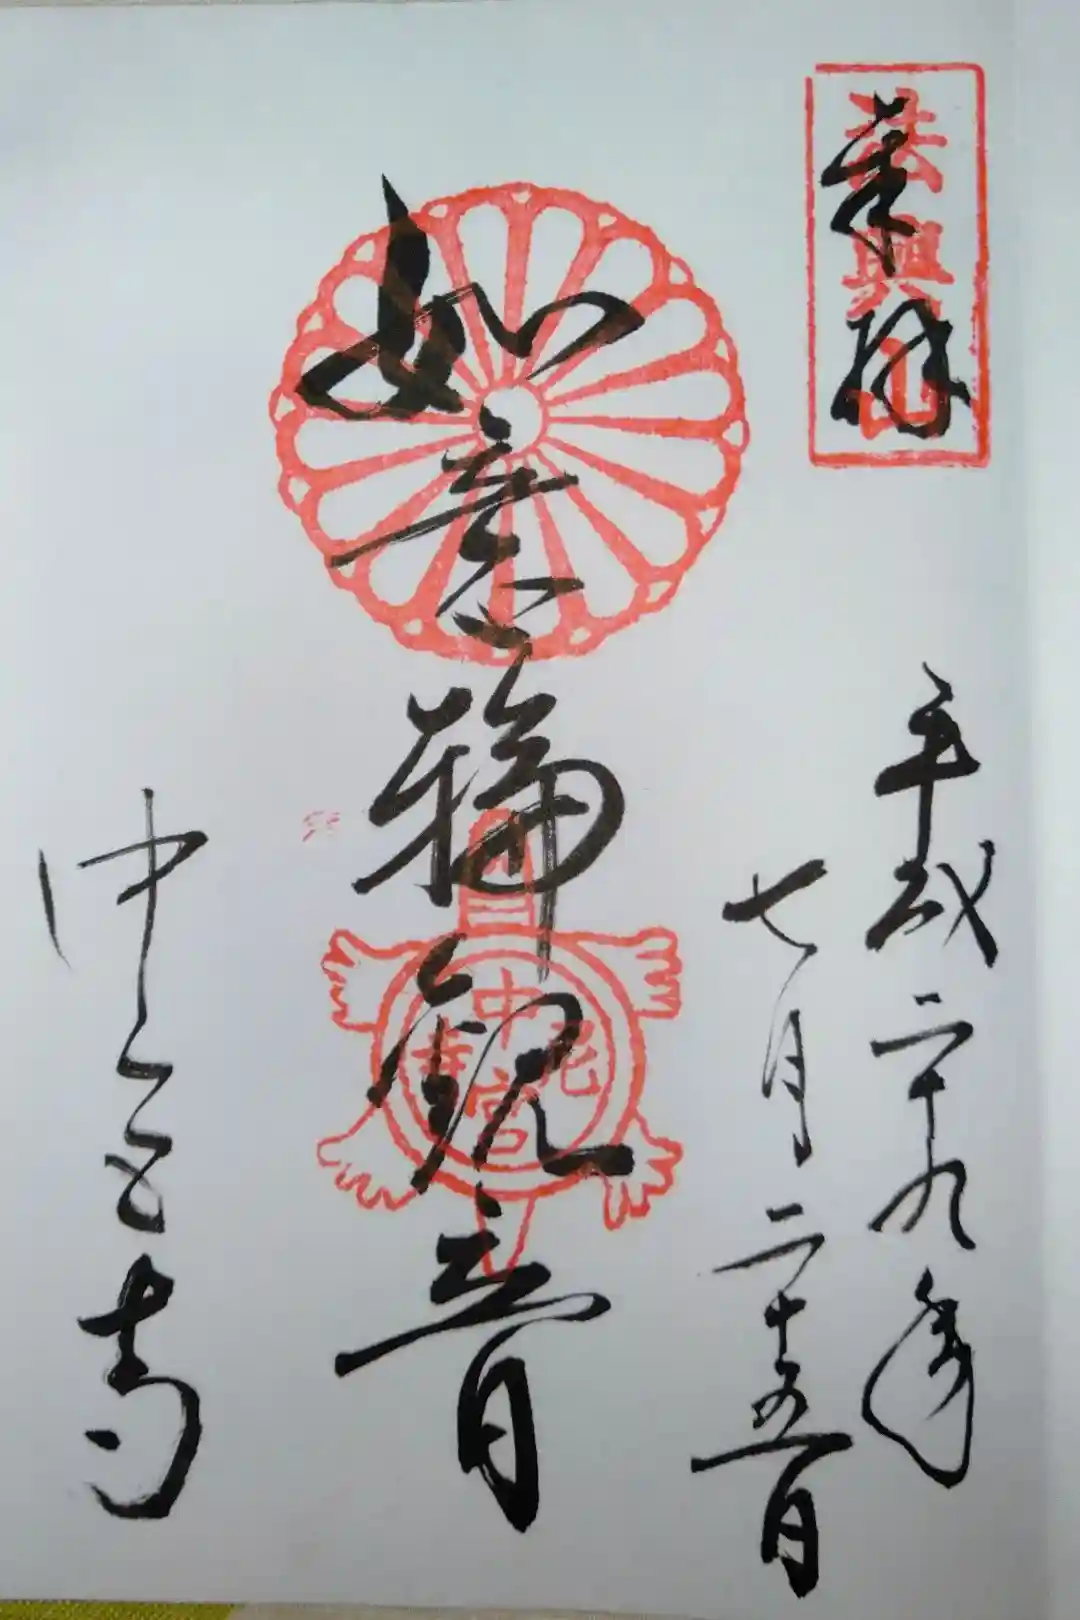 奉拝
法興山
平成二十九年
七月二十五日
如意輪観音
中宮尼寺
中宮寺